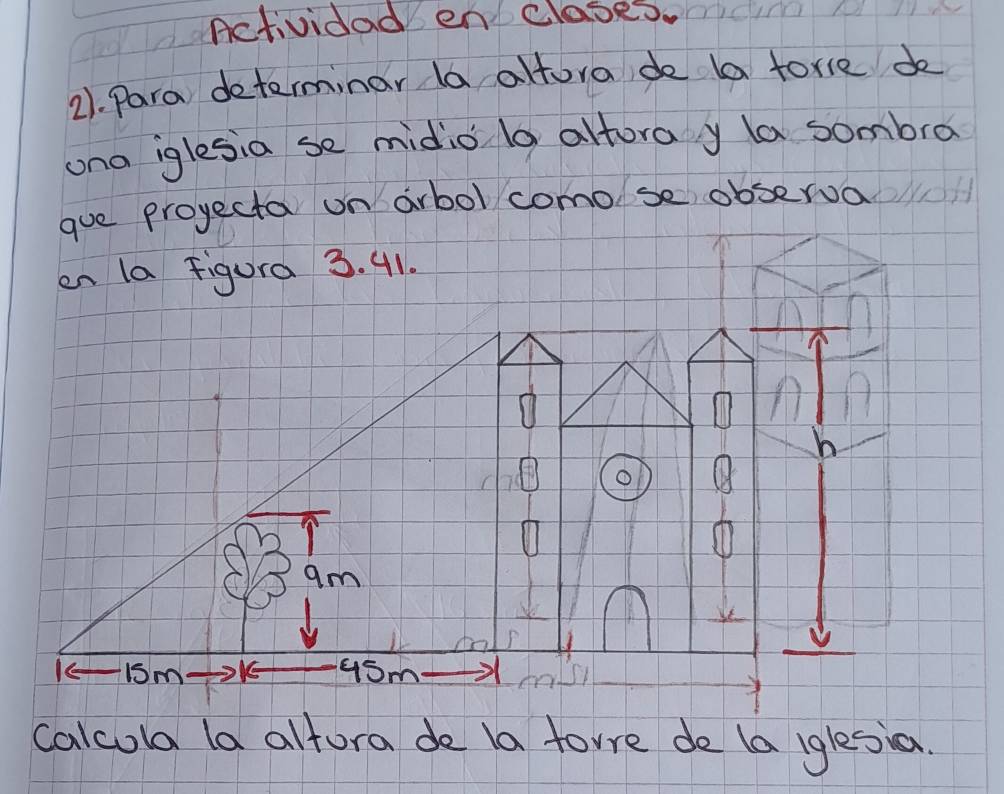 Actividad en clases.
2). Para determinar la altura de la torre de
una iglesia se midió la altura y la sombra
que proyecta un árbol como se observa
en la figura 3.41.
h
9m
15m
45m
Calcula la altura de la torre de la iglesia.